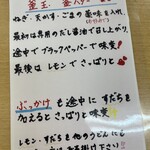 釜玉 釜バター
ねぎ・天かす・ごまの薬味を入れ、
最初は専用のだし醤油で召し上がり、
途中でブラックペッパーで味変!
最後はレモンでさっぱりと
ぶっかけも途中にすだちを
加えるとさっぱりと味変
レモン・すだちを他のうどんにも